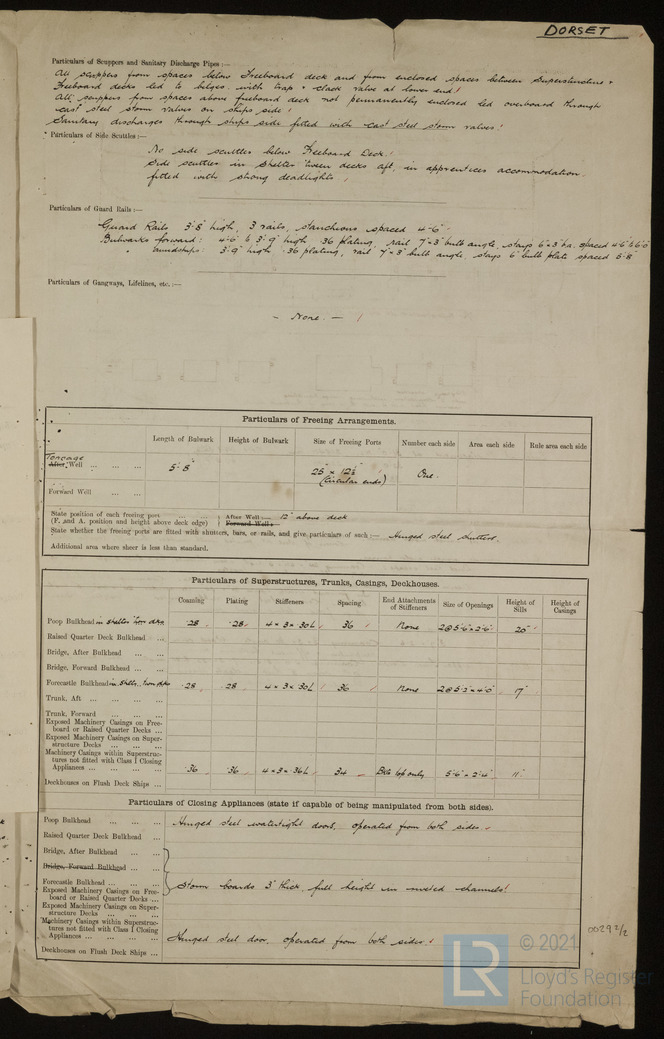 DORSET
Particulars of Scuppers and Sanitary Discharge Pipes :—
All scuppers from spaces below Freeboard deck and from enclosed spaces between Superstructure &
Freeboard decks led to bilges with trap & clack valve at lower end!
All scuppers from spaces above freeboard deck not permanently enclosed led overboard through
cast steel storm valves on ships side!
Sanitary discharges through ships side fitted with cast steel storm valves!
Particulars of Side Scuttles :—
No side scuttles below Freeboard Deck!
Side scuttles in shelter 'tween decks aft, in apprentices accommodation.
fitted with strong deadlights,
Particulars of Guard Rails :—
Guard Rails 3'-8" high, 3 rails, stanchions spaced 4'-6"
Bulwarks forward: 4'-6" to 3'-9" high .36 plating, rail 7"×3" bulb angle, stays 6"×3" b.a. spaced 4'-6" to 6'-0"
" amidships: 3'-9" high .36 plating, rail 7"×3" bulb angle, stays 6" bulb plate spaced 5'-8"
Particulars of Gangways, Lifelines, etc. :—
— None. —
Particulars of Freeing Arrangements.
Length of Bulwark Height of Bulwark Size of Freeing Ports Number each side Area each side Rule area each side
Tonnage
After Well ... ... ... 5'-8" 25" × 12½" One.
(Circular ends)
Forward Well ... ...
State position of each freeing port ... ... After Well :— 12" above deck
(F. and A. position and height above deck edge) Forward Well :—
State whether the freeing ports are fitted with shutters, bars, or rails, and give particulars of such :— Hinged steel shutters.
Additional area where sheer is less than standard.
Particulars of Superstructures, Trunks, Casings, Deckhouses.
Coaming Plating Stiffeners Spacing End Attachments of Stiffeners Size of Openings Height of Sills Height of Casings
Poop Bulkhead in shelter 'tween dks .28 .28 4 × 3 × .30 L 36 None 2 @ 5'-6" × 2'-6" 20"
Raised Quarter Deck Bulkhead ...
Bridge, After Bulkhead ... ...
Bridge, Forward Bulkhead ... ...
Forecastle Bulkhead in shelter 'tween dks .28 .28 4 × 3 × .30 L 36 None 2 @ 5'-3" × 4'-0" 17"
Trunk, Aft ... ... ...
Trunk, Forward ... ... ...
Exposed Machinery Casings on Free-
board or Raised Quarter Decks ...
Exposed Machinery Casings on Super-
structure Decks ... ... ...
Machinery Casings within Superstruc-
tures not fitted with Class I Closing
Appliances ... ... ... ... .36 .36 4 × 3 × .36 L 34 Bkts top only 5'-6" × 2'-4" 11"
Deckhouses on Flush Deck Ships ...
Particulars of Closing Appliances (state if capable of being manipulated from both sides).
Poop Bulkhead ... ... ... Hinged steel watertight doors, operated from both sides
Raised Quarter Deck Bulkhead ...
Bridge, After Bulkhead ... ...
Bridge, Forward Bulkhead ... ...
Forecastle Bulkhead ... ... ... Storm boards 3" thick, full height in riveted channels!
Exposed Machinery Casings on Free-
board or Raised Quarter Decks ...
Exposed Machinery Casings on Super-
structure Decks ... ... ...
Machinery Casings within Superstruc-
tures not fitted with Class I Closing
Appliances ... ... ... ... Hinged steel door, operated from both sides.
Deckhouses on Flush Deck Ships ...
00292/2
LR
© 2021
Lloyd's Register
Foundation